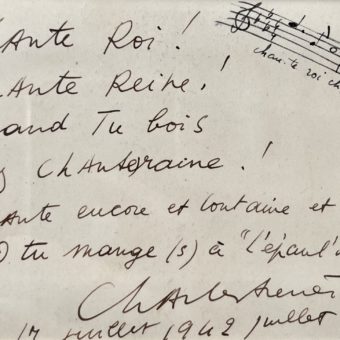 chan.te roi ch
ANte Roi !
ANte Reine !
and Tu bois
ChANteraine !
ANte encore et lontaine et
tu mange (s) à "l'épaul'
Charles Trenet
17 juillet 1942 juillet